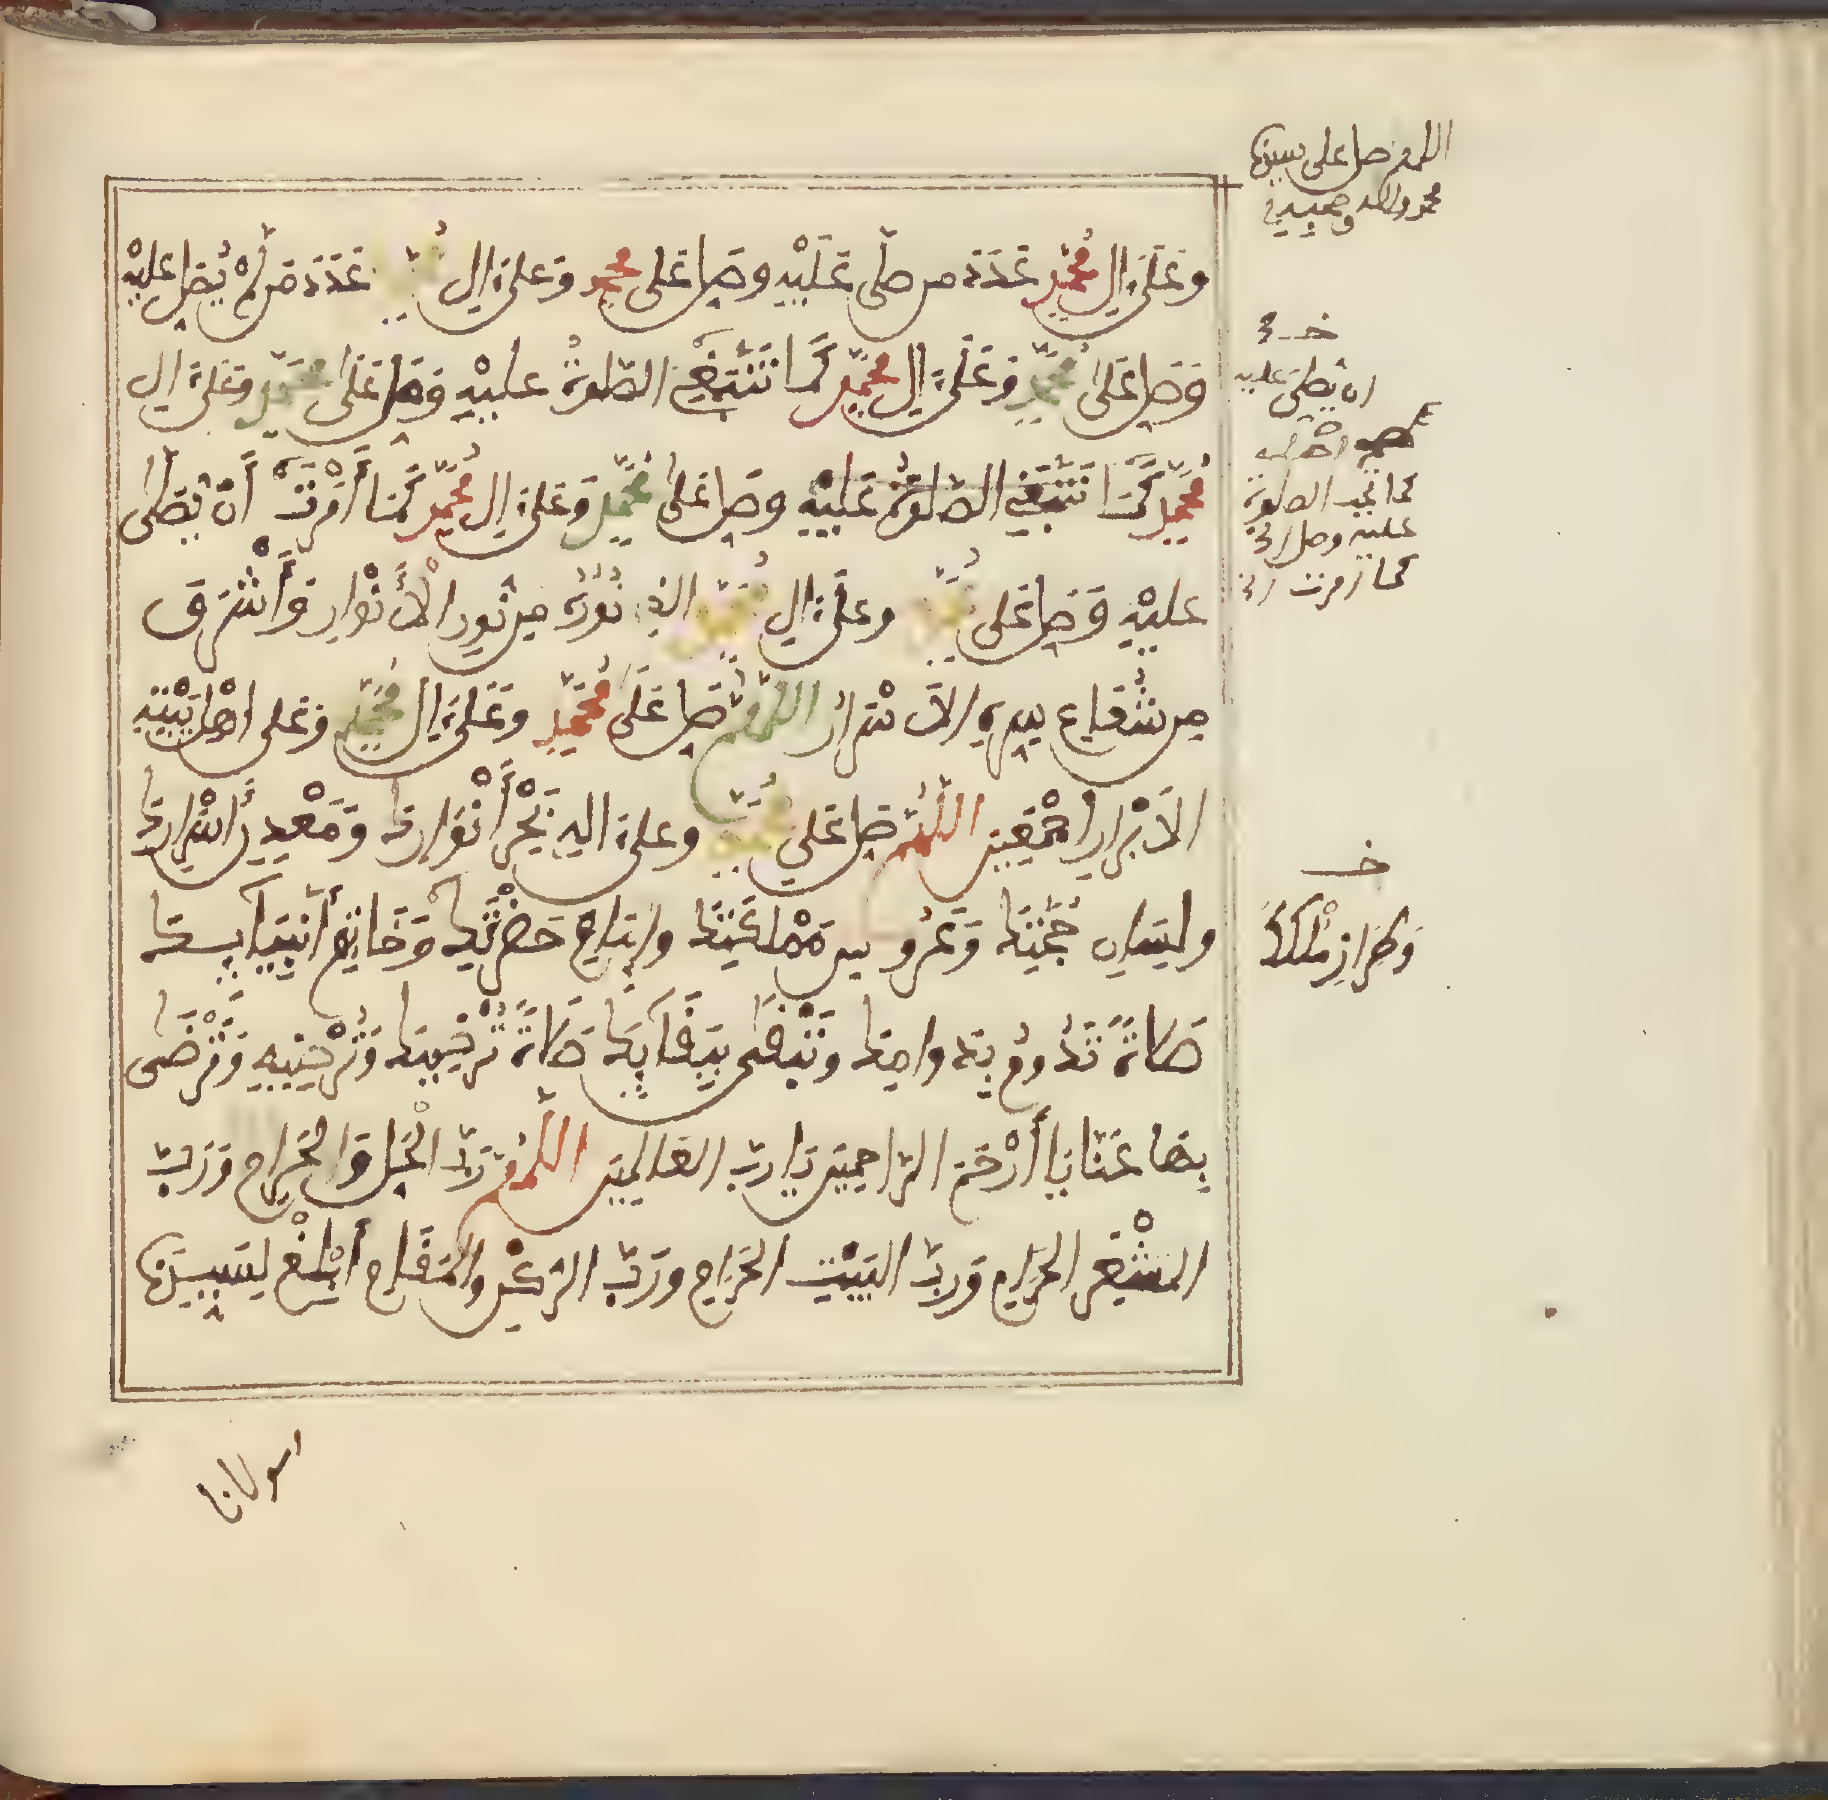 اللهم صل على سيدنا
محمد واله وصحبه
وَعَلَىٰ ءَالِ مُحَمَّدٍ عَدَدَ من صلّى عَلَيْهِ وصَلِّ عَلَى محمد وَعلىٰ ءال مُحَمَّدٍ عَدَدَ مَن لَّمْ يُصَلِّ عليْهِ
وَصَلِّ عَلَىٰ مُحَمَّدٍ وَعَلَىٰ ءَالِ مُحَمَّدٍ كَمَا تَنْبَغِي الصّلوةُ عليْهِ وَصَلِّ عَلَىٰ مُحَمَّدٍ وَعَلىٰ ءال
مُحَمَّدٍ كَمَا تَنْبَغِي الصّلوةُ عَلَيْهِ وصَلِّ عَلىٰ مُحَمَّدٍ وَعَلىٰ ءالِ مُحَمَّدٍ كَمَا أَمَرْتَ أَن يُصَلَّىٰ
عليْهِ وَصَلِّ عَلى مُحَمَّدٍ وعَلَىٰ ءالِ مُحَمَّدٍ الذي نُورُهُ مِن نُورِ الْأَنْوَارِ وَأَشْرَقَ
مِن شُعَاعِ سِرِّهِ الاَسْرَارُ اللَّهُمَّ صَلِّ عَلَىٰ مُحَمَّدٍ وَعَلَىٰ ءَالِ مُحَمَّدٍ وَعَلى اهْلِ بَيْتِهِ
الاَبْرَارِ اجْمَعِينَ اللَّهُمَّ صَلِّ عَلى مُحَمَّدٍ وعلىٰ ءالِهِ بَحْرِ أَنْوَارِكَ وَمَعْدِنِ أَسْرَارِكَ
ولِسَانِ حُجَّتِكَ وَعَرُوسِ مَمْلَكَتِكَ وإِمَامِ حَضْرَتِكَ وَخَاتِمِ أَنبِيَآئِكَ
صَلَاةً تَدُومُ بِدَوامِكَ وَتَبْقَىٰ بِبَقَآئِكَ صَلَاةً تُرْضِيكَ وَتُرْضِيهِ وَتَرْضَى
بِهَا عَنَّا يَا أَرْحَمَ الرّاحِمِينَ يَا رَبَّ العَالَمِينَ اللَّهُمَّ رَبَّ الْحِلِّ وَالحَرَامِ وَرَبَّ
المَشْعَرِ الحَرَامِ وَرَبَّ البَيْتِ الحَرَامِ وَرَبَّ الرُّكْنِ والمَقَامِ أَبْلِغْ لِسَيِّدِنَا
خـ
ان يصلى عليه
كما تجب الصلوة
عليه وصل الخ
كما امرت الخ
خـ
وَطِرَازِ مُلْكِكَ